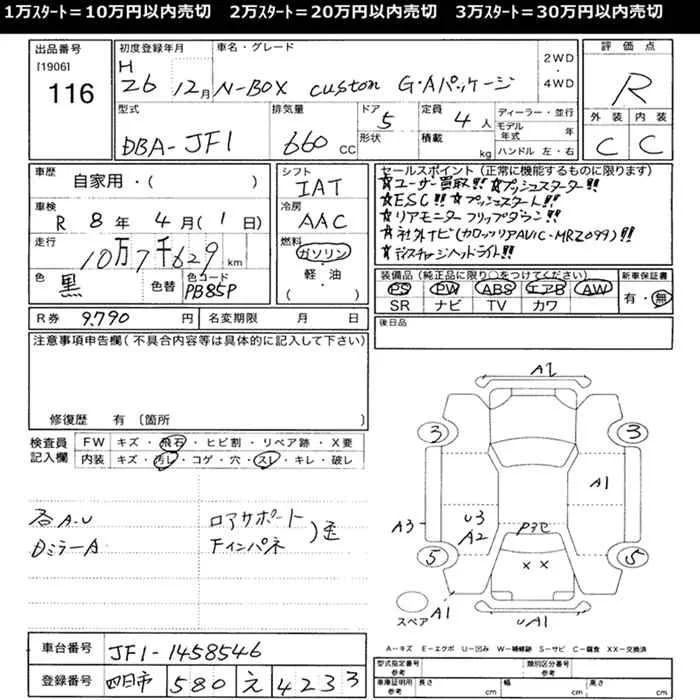 1万ｽﾀｰﾄ＝10万円以内売切　2万ｽﾀｰﾄ＝20万円以内売切　3万ｽﾀｰﾄ＝30万円以内売切
出品番号
[1906]
116
初度登録年月
H
26 12月
車名・グレード
N-BOX custom G・Aパッケージ
2WD
・
4WD
評価点
R
外装 内装
C C
型式
DBA-JF1
排気量
660 CC
ドア
5
形状
定員
4 人
積載
kg
ディーラー・並行
モデル年式 年
ハンドル 左・右
車歴
自家用・( )
車検
R 8年 4月 ( 1 日)
走行
10万7千629 km
色
黒
色替
色コード
PB85P
シフト
IAT
冷房
AAC
燃料
ガソリン
・
軽・油
( )
セールスポイント (正常に機能するものに限ります)
☆ユーザー買取!! ☆プッシュスターター!!
☆ESC!! ☆プッシュスタート!!
☆リアモニター フリップダウン!!
☆社外ナビ(カロッツリアAVIC-MRZ099)!!
☆ディスチャージヘッドライト!!
装備品 (純正品に限り○をつけてください)
PS PW ABS エアB AW
SR ナビ TV カワ
新車保証書
有・無
R券 9,790 円
名変期限 月 日
後日品
注意事項申告欄 (不具合内容等は具体的に記入して下さい)
修復歴 有 〔箇所
検査員
記入欄
FW キズ・飛石・ヒビ割・リペア跡・X要
内装 キズ・汚レ・コゲ・穴・スレ・キレ・破レ
各A.U
Dミラー A
ロアサポート
Fインパネ
) 歪
A2
3 3
A1
A3
U3
A2
5 5
X X
スペア
A1
UA1
A−キズ E−エクボ U−凹み W−補修跡 S−サビ C−腐食 XX−交換済
車台番号 JF1-1458546
登録番号 四日市 580 え 4233
型式指定番号
参考
類別区分番号
参考
車庫証明用
参考
長さ cm 幅 cm 高さ cm